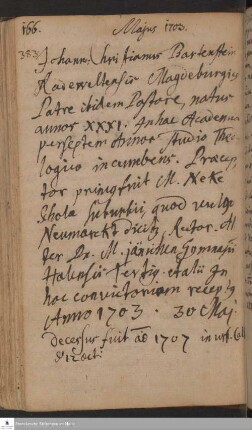 166. Majus 1703.
383. Johann Christianus Bartenstein
Radewellensis Magdeburgicus
Patre ibidem Pastore, natus
annos XXXI. In hac Academia
per septem annos studio Theo
logico incumbens. Præcep
tor primus fuit M. Neke
Scholæ Suburbii quod vulgo
Neumarckt dicitur, Rector. Al
ter Dn. M. Jänichen Gymnasii
Halensis Tertius. et alii In
hac convictorium receptus
Anno 1703. 30 Maj
decessus fuit ad 1707 in
d 12 oct: